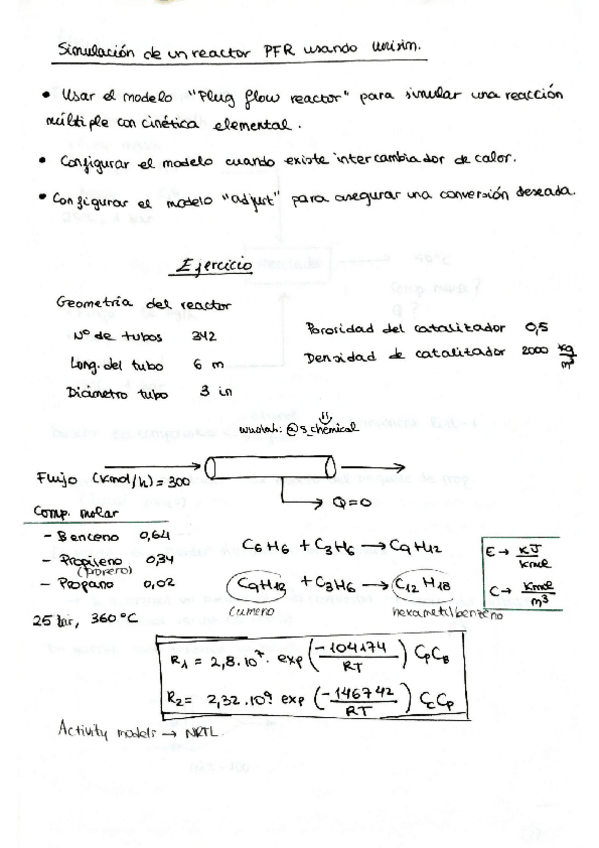 Simulación de un reactor PFR usando unisim.
• Usar el modelo "Plug flow reactor" para simular una reacción
múltiple con cinética elemental.
• Configurar el modelo cuando existe intercambiador de calor.
• Configurar el modelo "adjust" para asegurar una conversión deseada.
Ejercicio
Geometría del reactor
Nº de tubos 342
Long. del tubo 6 m
Diámetro tubo 3 in
Porosidad del catalizador 0,5
Densidad de catalizador 2000 kg/m³
wuolah: @s_chemical
Flujo (kmol/h) = 300
Q=0
Comp. molar
- Benceno 0,64
- Propileno 0,34
(propeno)
- Propano 0,02
25 bar, 360 °C
C6H6 + C3H6 → C9H12
C9H12 + C3H6 → C12H18
cumeno hexametilbenzeno
E → KJ/kmol
C → kmol/m³
R1 = 2,8·10⁷· exp (-104174/RT) CpCB
R2 = 2,32·10⁹· exp (-146742/RT) CcCp
Activity models → NRTL.